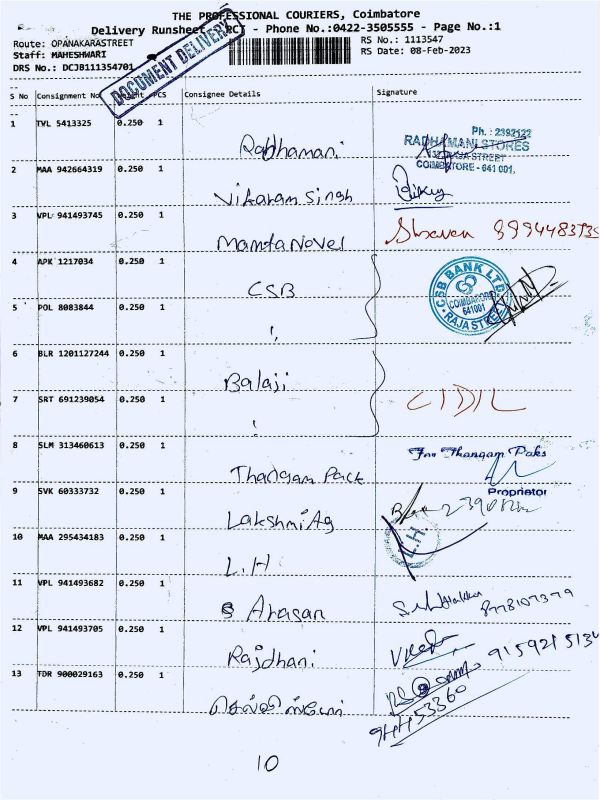 THE PROFESSIONAL COURIERS, Coimbatore
Delivery Runsheet - PCT - Phone No.:0422-3505555 - Page No.:1
Route: OPANAKARASTREET
RS No.: 1113547
Staff: MAHESHWARI
RS Date: 08-Feb-2023
DRS No.: DCJB111354701
DOCUMENT DELIVERY
S No Consignment No Weight PCS Consignee Details Signature
1 TVL 5413325 0.250 1 Radhamani
Ph.: 2392122
RADHAMANI STORES
COIMBATORE - 641 001.
2 MAA 942664319 0.250 1 Vikaram Singh
3 VPL 941493745 0.250 1 Mamta Novel
4 APK 1217034 0.250 1 CSB
CSB BANK LTD.
COIMBATORE
641001
RAJA STREET
5 POL 8083844 0.250 1 "
6 BLR 1201127244 0.250 1 Balaji
7 SRT 691239054 0.250 1 "
8 SLM 313460613 0.250 1 Thangam Pack
For Thangam Paks
Proprietor
9 SVK 60333732 0.250 1 Lakshmi Ag
10 MAA 295434183 0.250 1 L.H
L.H.
11 VPL 941493682 0.250 1 Arasan
12 VPL 941493705 0.250 1 Rajdhani
13 TDR 900029163 0.250 1
10